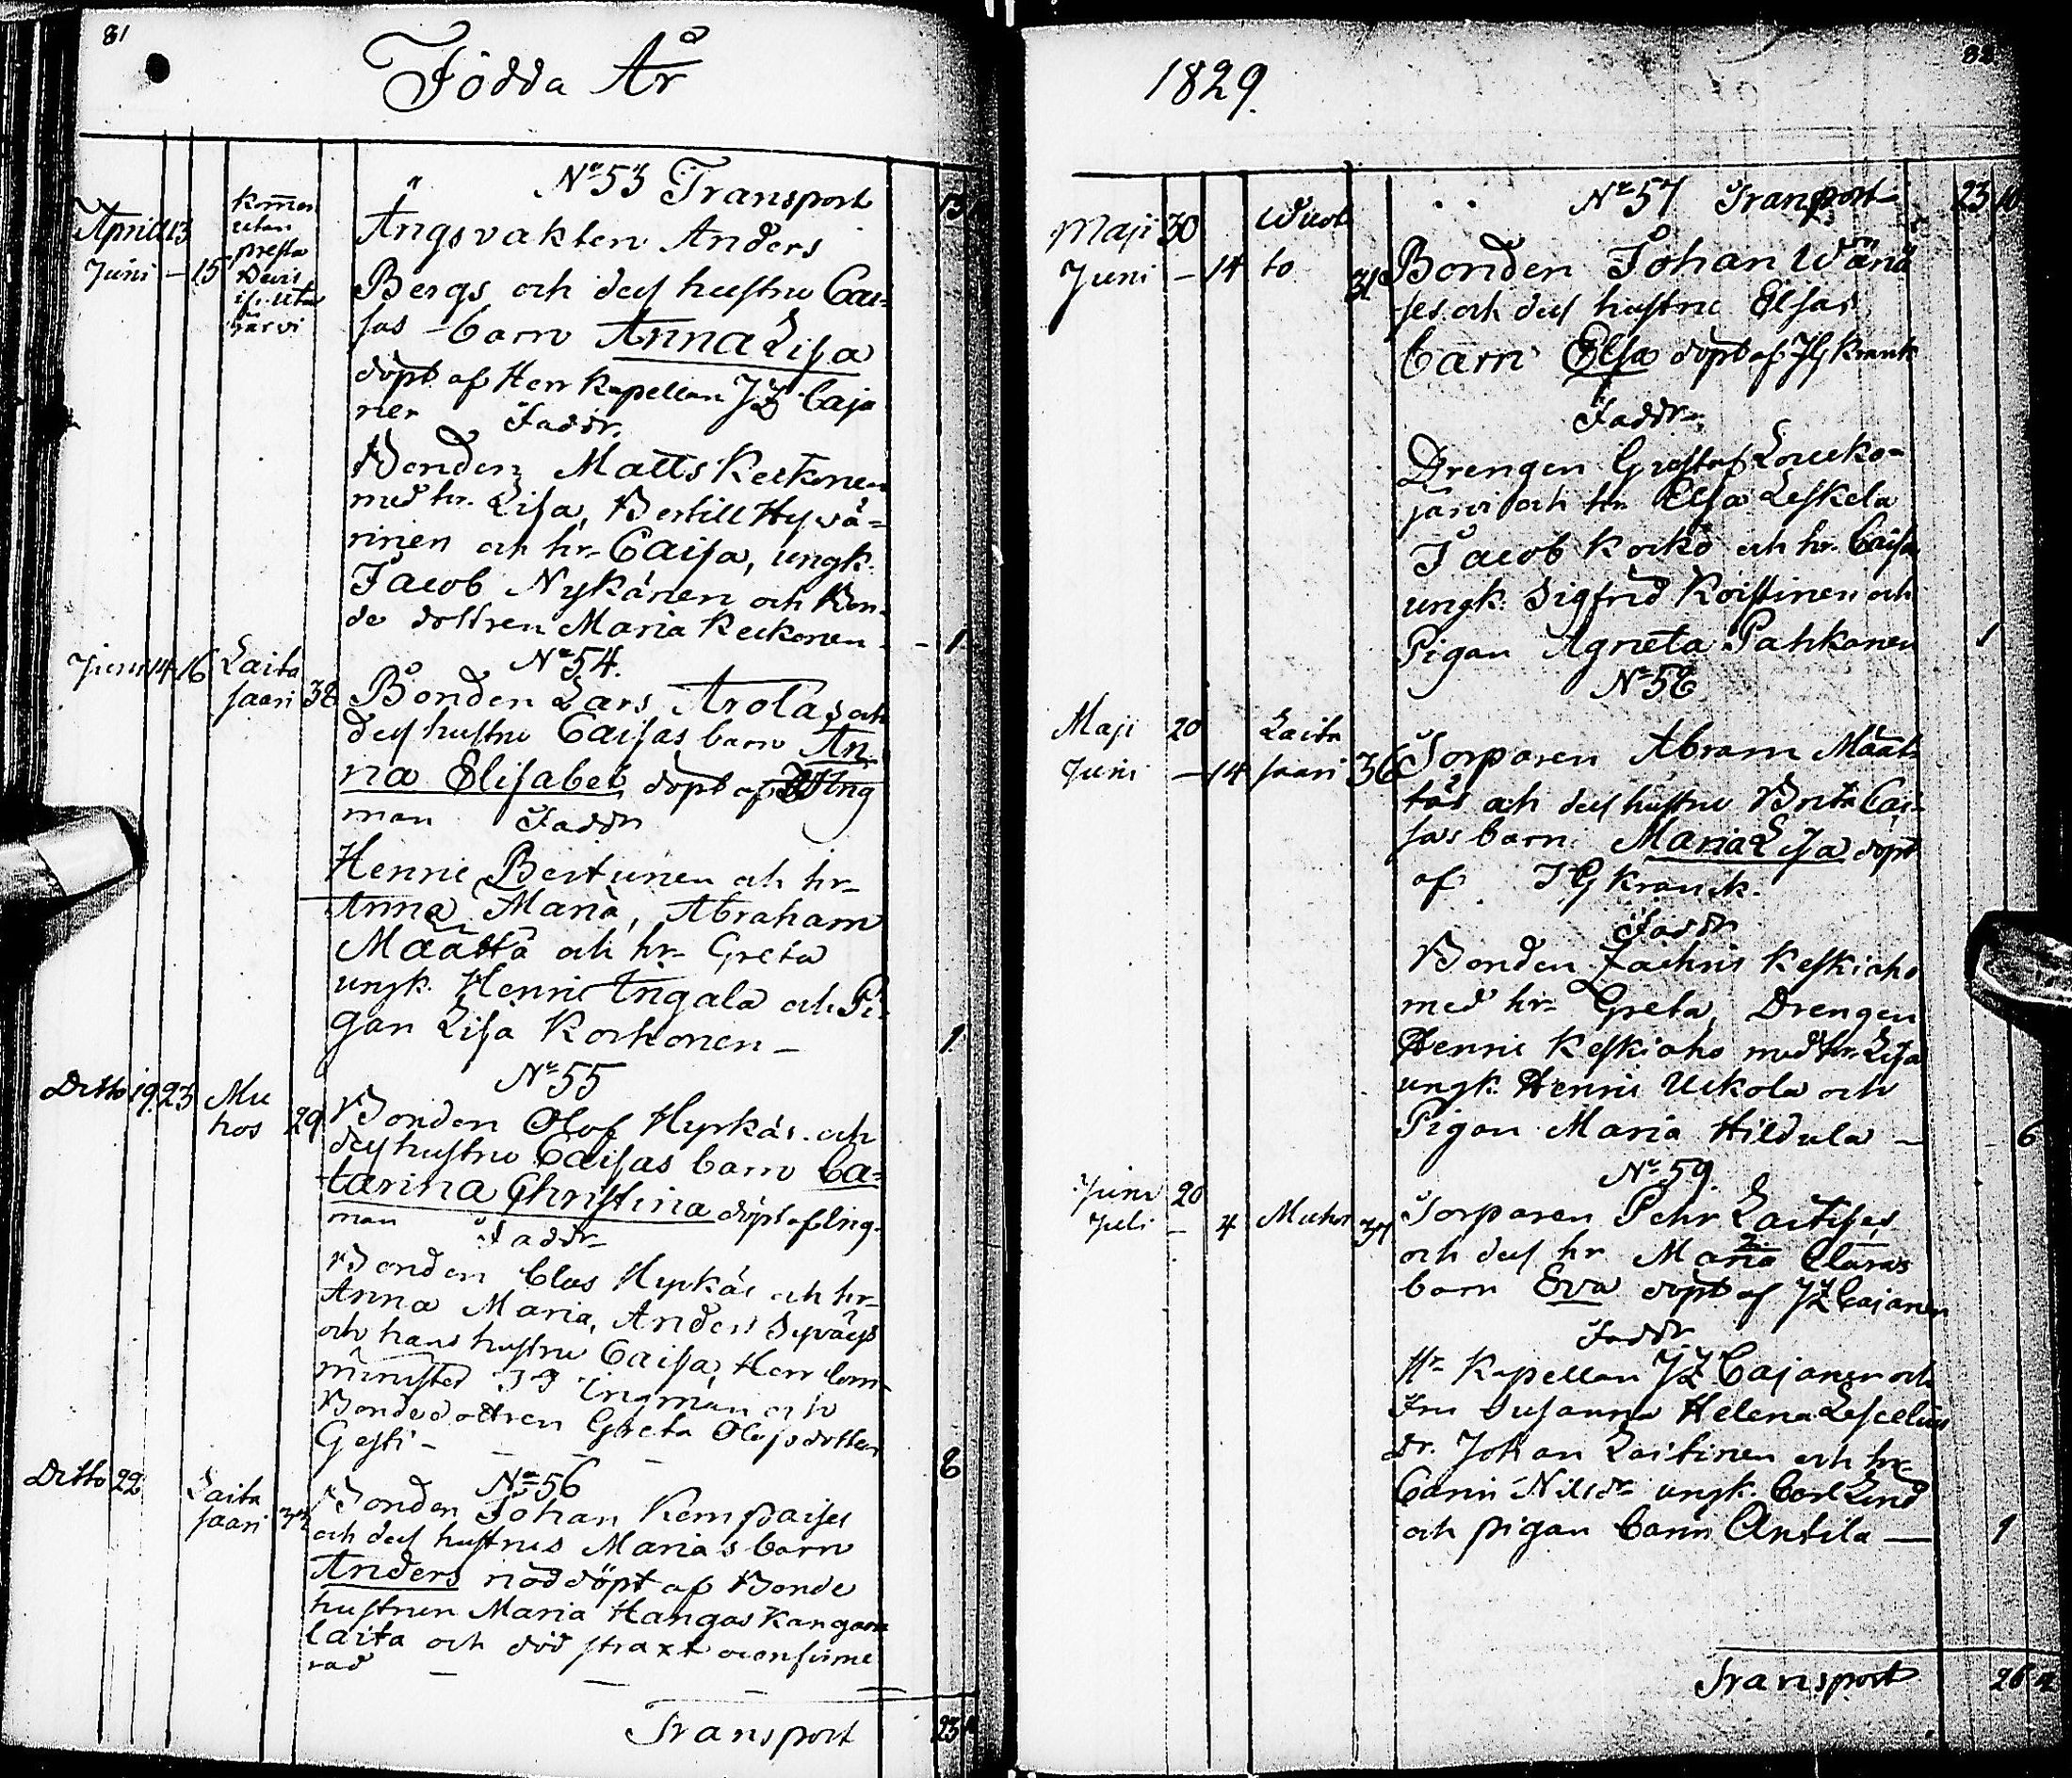 81
Födda År
Nr 53 Transport
April 13
Juni - 15
kom̅er
utan
presta
Bevis
Ängsvakten Anders
Bergs och dess hustru Cai-
sas barn Anna Lisa
döpt af Herr Kapellan JZ Caja
ner Faddr.
Bonden Matts Keckonen
med hr. Lisa, Bertill Hyvä-
rinen och hr. Caisa, ungk.
Jacob Nykänen och Bon-
de dottren Maria Keckonen - 1
Nr 54.
Juni 14 16 Laita
saari 38
Bonden Lars Arolas och
dess hustru Caisas barn An-
na Elisabet döpt af Ing
man Faddr
Henric Bertunen och hr-
Anna Maria, Abraham
Määttä och hr- Greta
ungk. Henric Ingala och Pi-
gan Lisa Korhonen - 1
Nr 55
Ditto 19. 23 Mu
hos 29
Bonden Olof Hyrkäs och
dess hustru Caisas barn Ca-
tarina Christina döpt af Ing-
man Faddr-
Bonden Clas Hyrkäs och hr-
Anna Maria, Anders
och hans hustru Caisa, Herr Com-
minister Ingman och
Bondedottren Greta Olofsdotter
Gesti - - - - 8
Nr 56
Ditto 22 Laita
saari
Bonden Johan Kempaises
och dess hustrus Marias barn
Anders nöddöpt af Bonde
hustrun Maria Hangas Kangas
laita och död straxt oconfirme
rad
Transport 23
82
1829.
Nr 57 Transport 23 10
Maji 30
Juni - 14
Wuol
to
Bonden Johan Wänä
ses och dess hustru Elsas
barn Elsa döpt af JG Kranck
Faddr-
Drengen Gustaf Loucko-
jarvi och hr. Elsa Leskela
Jacob Kocko och hr. Caisa
ungk. Sigfrid Koistinen och
Pigan Agneta Pahkanen 1
Nr 58
Maji 20
Juni - 14
Laita
saari 36
Torparen Abram Määt-
täs och dess hustru Brita Cai-
sas barn Maria Lisa döpt
af JG Kranck.
Faddr
Bonden Zachris Keskiaho
med hr- Greta, Drengen
Henric Keskiaho med hr. Lisa
ungk. Henric Uckola och
Pigan Maria Hildula - 6
Nr 59.
Juni 20
Juli - 4
Muhos
Torparen Pehr Laitises
och dess hr Maria Claras
barn Eva döpt af JZ Cajaner
Faddr
Hr Kapellan JZ Cajaner och
Fru Susanna Helena Lescelius
Dr. Johan Laitinen och hr-
Carin Nilsdr ungk. Carl Lind
och pigan Carin Antila - 1
Transport 26